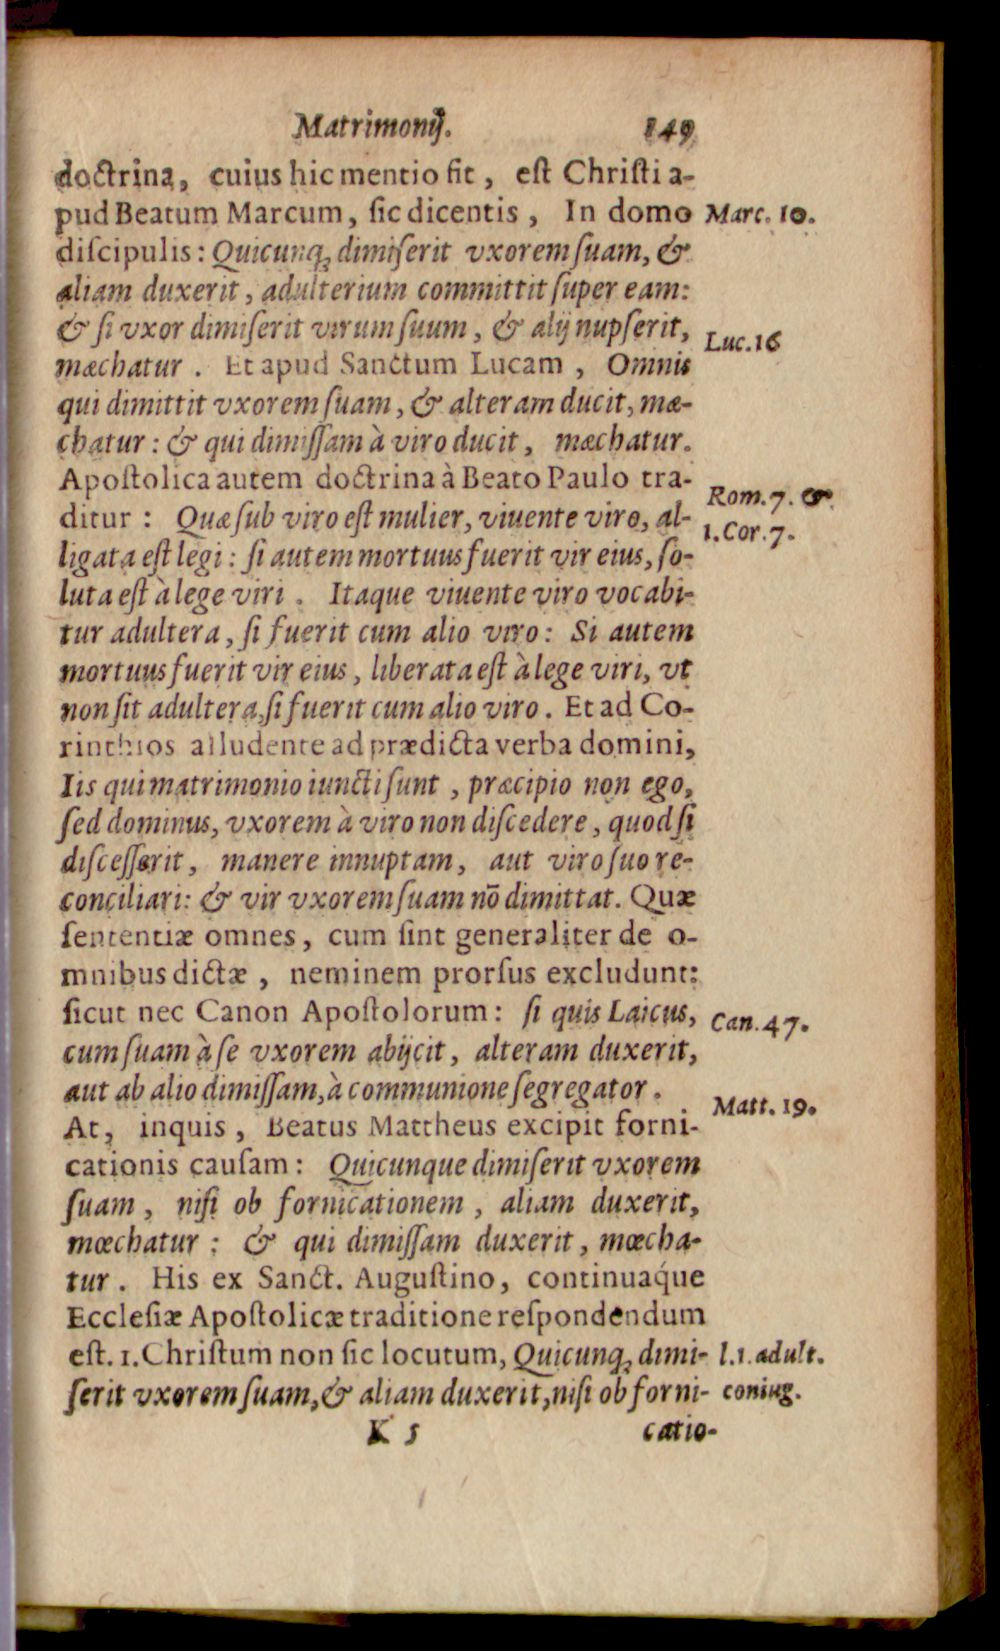 Matrimonĳ. 149
doctrina, cuius hic mentio fit, eſt Chriſti a-
pud Beatum Marcum, ſic dicentis, In domo Marc. 10.
diſcipulis: Quicunq; dimiſerit vxorem ſuam, &
aliam duxerit, adulterium committit ſuper eam:
& ſi vxor dimiſerit virum ſuum, & alĳ nupſerit,
Luc. 16
mæchatur. Et apud Sanctum Lucam, Omnis
qui dimittit vxorem ſuam, & alteram ducit, mæ-
chatur: & qui dimiſſam à viro ducit, mæchatur.
Apoſtolica autem doctrina à Beato Paulo tra-
Rom. 7. &
ditur: Quæ ſub viro eſt mulier, viuente viro, al-
1. Cor. 7.
ligata eſt legi: ſi autem mortuus fuerit vir eius, ſo-
luta eſt à lege viri. Itaque viuente viro vocabi-
tur adultera, ſi fuerit cum alio viro: Si autem
mortuus fuerit vir eius, liberata eſt à lege viri, vt
non ſit adultera, ſi fuerit cum alio viro. Et ad Co-
rinthios alludente ad prædicta verba domini,
Iis qui matrimonio iuncti ſunt, præcipio non ego,
ſed dominus, vxorem à viro non diſcedere, quod ſi
diſceſſerit, manere innuptam, aut viro ſuo re-
conciliari: & vir vxorem ſuam nō dimittat. Quæ
ſententiæ omnes, cum ſint generaliter de o-
mnibus dictæ, neminem prorſus excludunt:
ſicut nec Canon Apoſtolorum: ſi quis Laicus, Can. 47.
cum ſuam à ſe vxorem abĳcit, alteram duxerit,
aut ab alio dimiſſam, à communione ſegregator.
Matt. 19.
At, inquis, Beatus Mattheus excipit forni-
cationis cauſam: Quicunque dimiſerit vxorem
ſuam, niſi ob fornicationem, aliam duxerit,
mœchatur: & qui dimiſſam duxerit, mœcha-
tur. His ex Sanct. Auguſtino, continuaq́ue
Eccleſiæ Apoſtolicæ traditione reſpondendum
eſt. 1. Chriſtum non ſic locutum, Quicunq; dimi- l. 1. adult.
ſerit vxorem ſuam, & aliam duxerit, niſi ob forni- coniug.
K 5 catio-